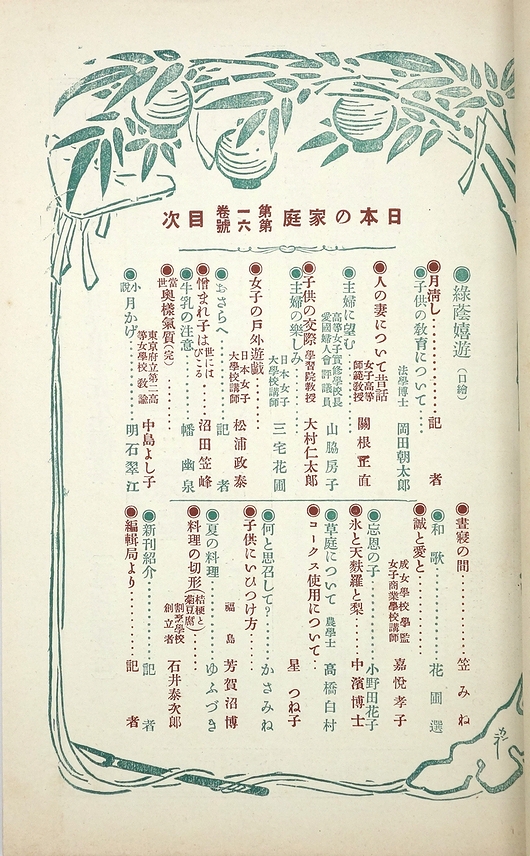 日本の家庭 第一卷 第六號 目次
綠蔭嬉遊(口繪)
月淸し 記者
子供の敎育について 法學博士 岡田朝太郎
人の妻について昔話 女子高等師範敎授 關根正直
主婦に望む 高等女子實修學校長 愛國婦人會評議員 山脇房子
子供の交際 學習院敎授 大村仁太郎
主婦の樂しみ 日本女子大學校講師 三宅花圃
女子の戸外遊戲 日本女子大學校講師 松浦政泰
おさらへ 記者
憎まれ子は世にはびこる 沼田笠峰
牛乳の注意 幡幽泉
當世奧樣氣質(完) 東京府立第二高等女學校敎諭 中島よし子
小說 月かげ 明石翠江
晝寢の間 笠みね
和歌 花圃選
誠と愛と 成女學校學監 女子商業學校講師 嘉悅孝子
忘恩の子 小野田花子
氷と天麩羅と梨 中濱博士
草庭について 農學士 高橋白村
コークス使用について 星つね子
何と思召して? かさみね
子供にいひつけ方 福島 芳賀沼博
夏の料理 ゆふづき
料理の切形(桔梗と菊豆腐) 割烹學校創立者 石井泰次郎
新刊紹介 記者
編輯局より 記者